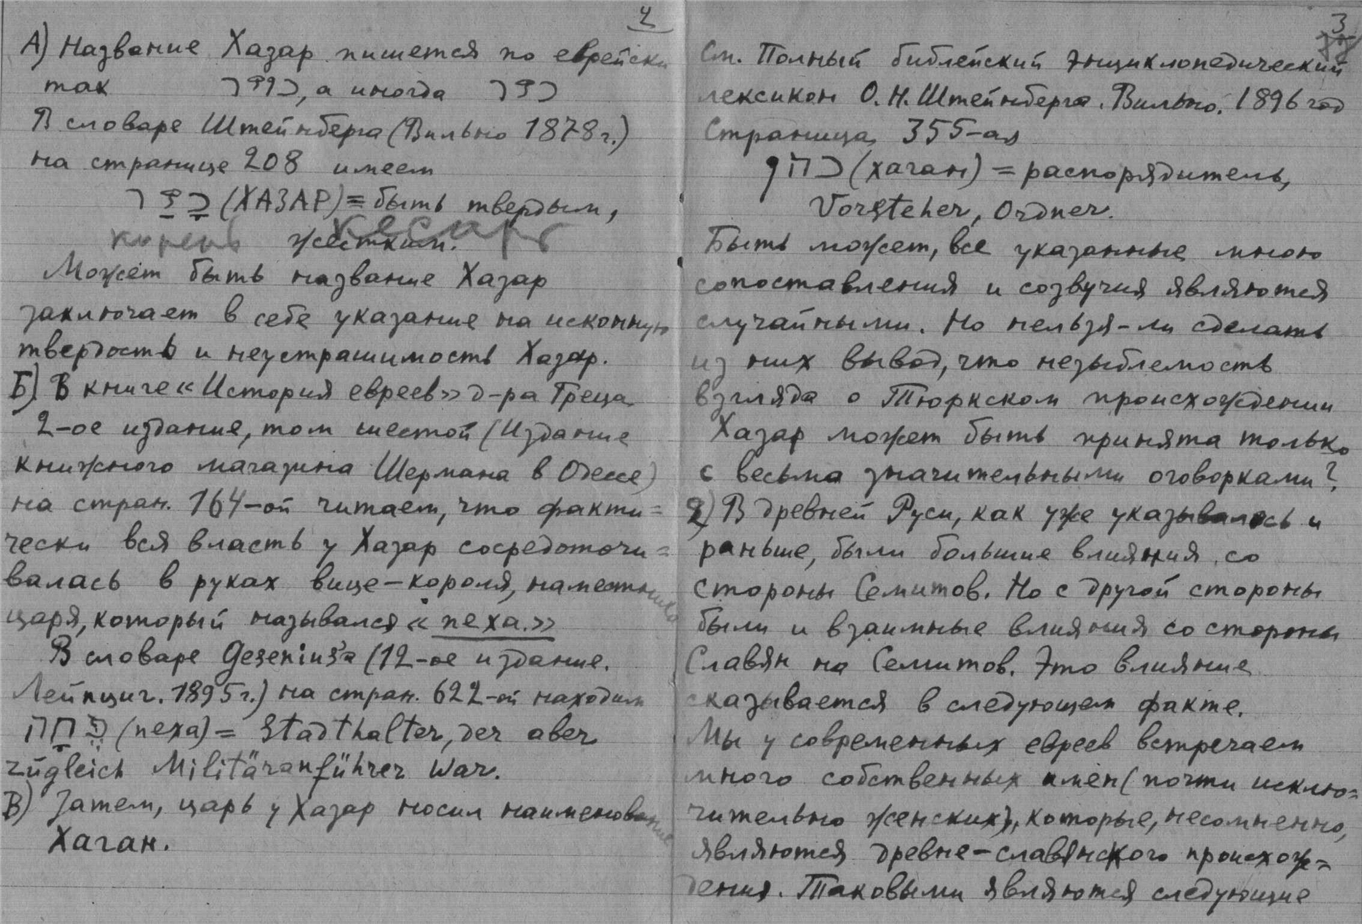 4
А) Название Хазар пишется по еврейски
так כוזר, а иногда כזר
В словаре Штейнберга (Вильно 1878 г.)
на странице 208 имеем
(ХАЗАР) = быть твердым,
жестким.
корень кесарь
Может быть название Хазар
заключает в себе указание на исконную
твердость и неустрашимость Хазар.
Б) В книге «История евреев» д-ра Греца
2-ое издание, том шестой (Издание
книжного магазина Шермана в Одессе)
на стран. 164-ой читаем, что факти=
чески вся власть у Хазар сосредоточи=
валась в руках вице-короля, наместника
царя, который назывался «пеха.»
В словаре Gesenius'а (12-ое издание.
Лейпциг. 1895 г.) на стран. 622-ой находим
פחה (пеха) = Stadthalter, der aber
zugleich Militäranführer war.
В) Затем, царь у Хазар носил наименование
Хаган.
3
См. Полный библейский энциклопедический
лексикон О.Н. Штейнберга. Вильно. 1896 год
Страница 355-ая
כהן (хаган) = распорядитель,
Vorsteher, Ordner.
Быть может, все указанные мною
сопоставления и созвучия являются
случайными. Но нельзя-ли сделать
из них вывод, что незыблемость
взгляда о Тюркском происхождении
Хазар может быть принята только
с весьма значительными оговорками?
2) В древней Руси, как уже указывалось и
раньше, были большие влияния со
стороны Семитов. Но с другой стороны
были и взаимные влияния со стороны
Славян на Семитов. Это влияние
сказывается в следующем факте.
Мы у современных евреев встречаем
много собственных имен (почти исклю=
чительно женских), которые, несомненно,
являются древне-славянского происхож=
дения. Таковыми являются следующие